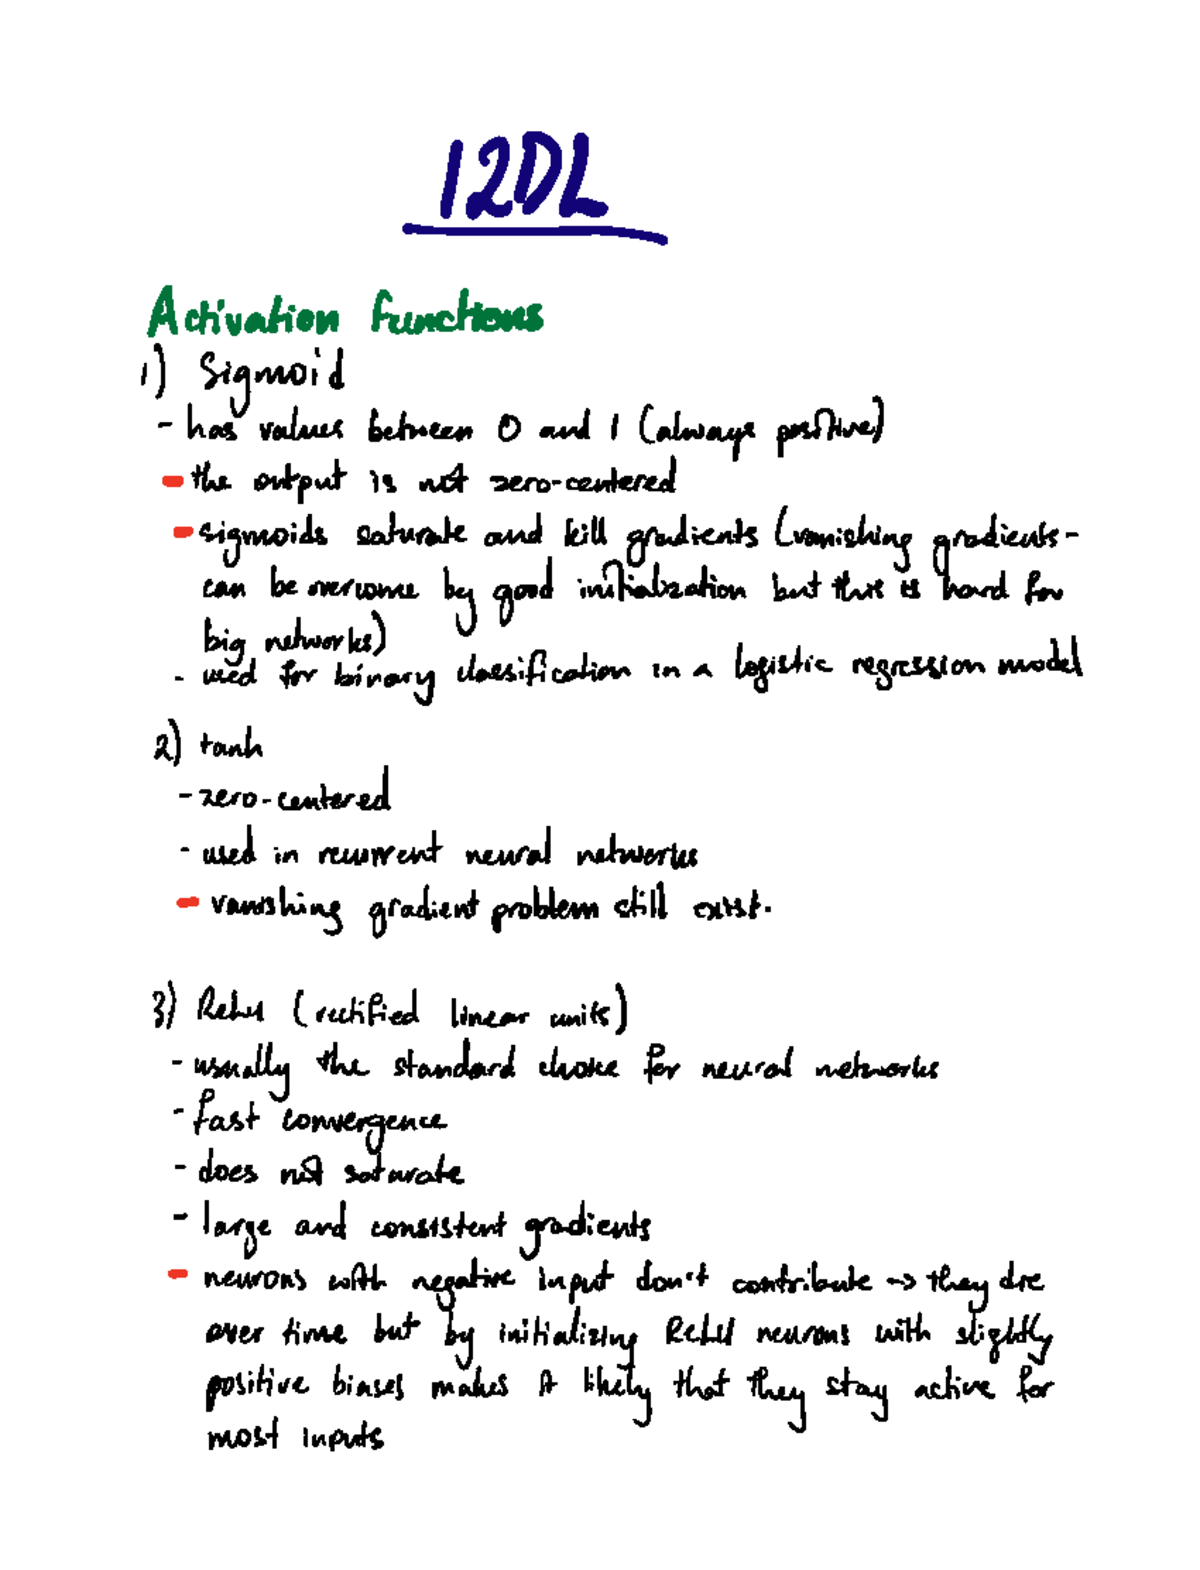 I2DL
Activation functions
1) Sigmoid
- has values between 0 and 1 (always positive)
- the output is not zero-centered
- sigmoids saturate and kill gradients (vanishing gradients -
can be overcome by good initialization but this is hard for
big networks)
- used for binary classification in a logistic regression model
2) tanh
- zero-centered
- used in recurrent neural networks
- vanishing gradient problem still exist.
3) ReLU (rectified linear units)
- usually the standard choice for neural networks
- fast convergence
- does not saturate
- large and consistent gradients
- neurons with negative input don't contribute -> they die
over time but by initializing ReLU neurons with slightly
positive biases makes it likely that they stay active for
most inputs